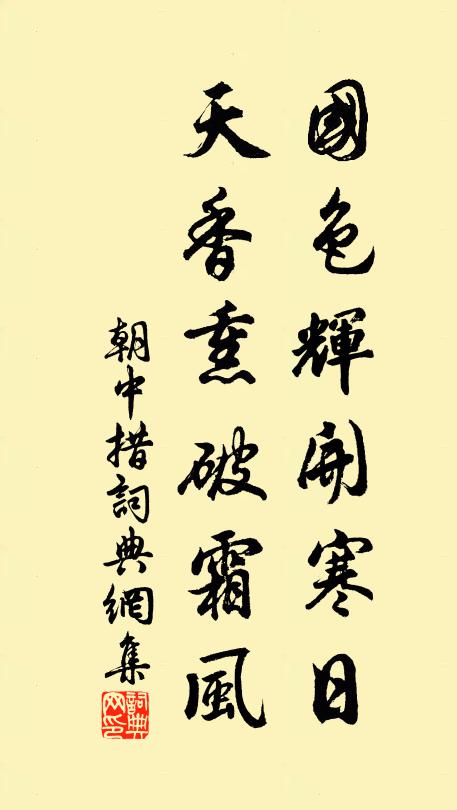 國色輝開寒日
天香熏破霜風
朝中措詞典網集
詞典網印